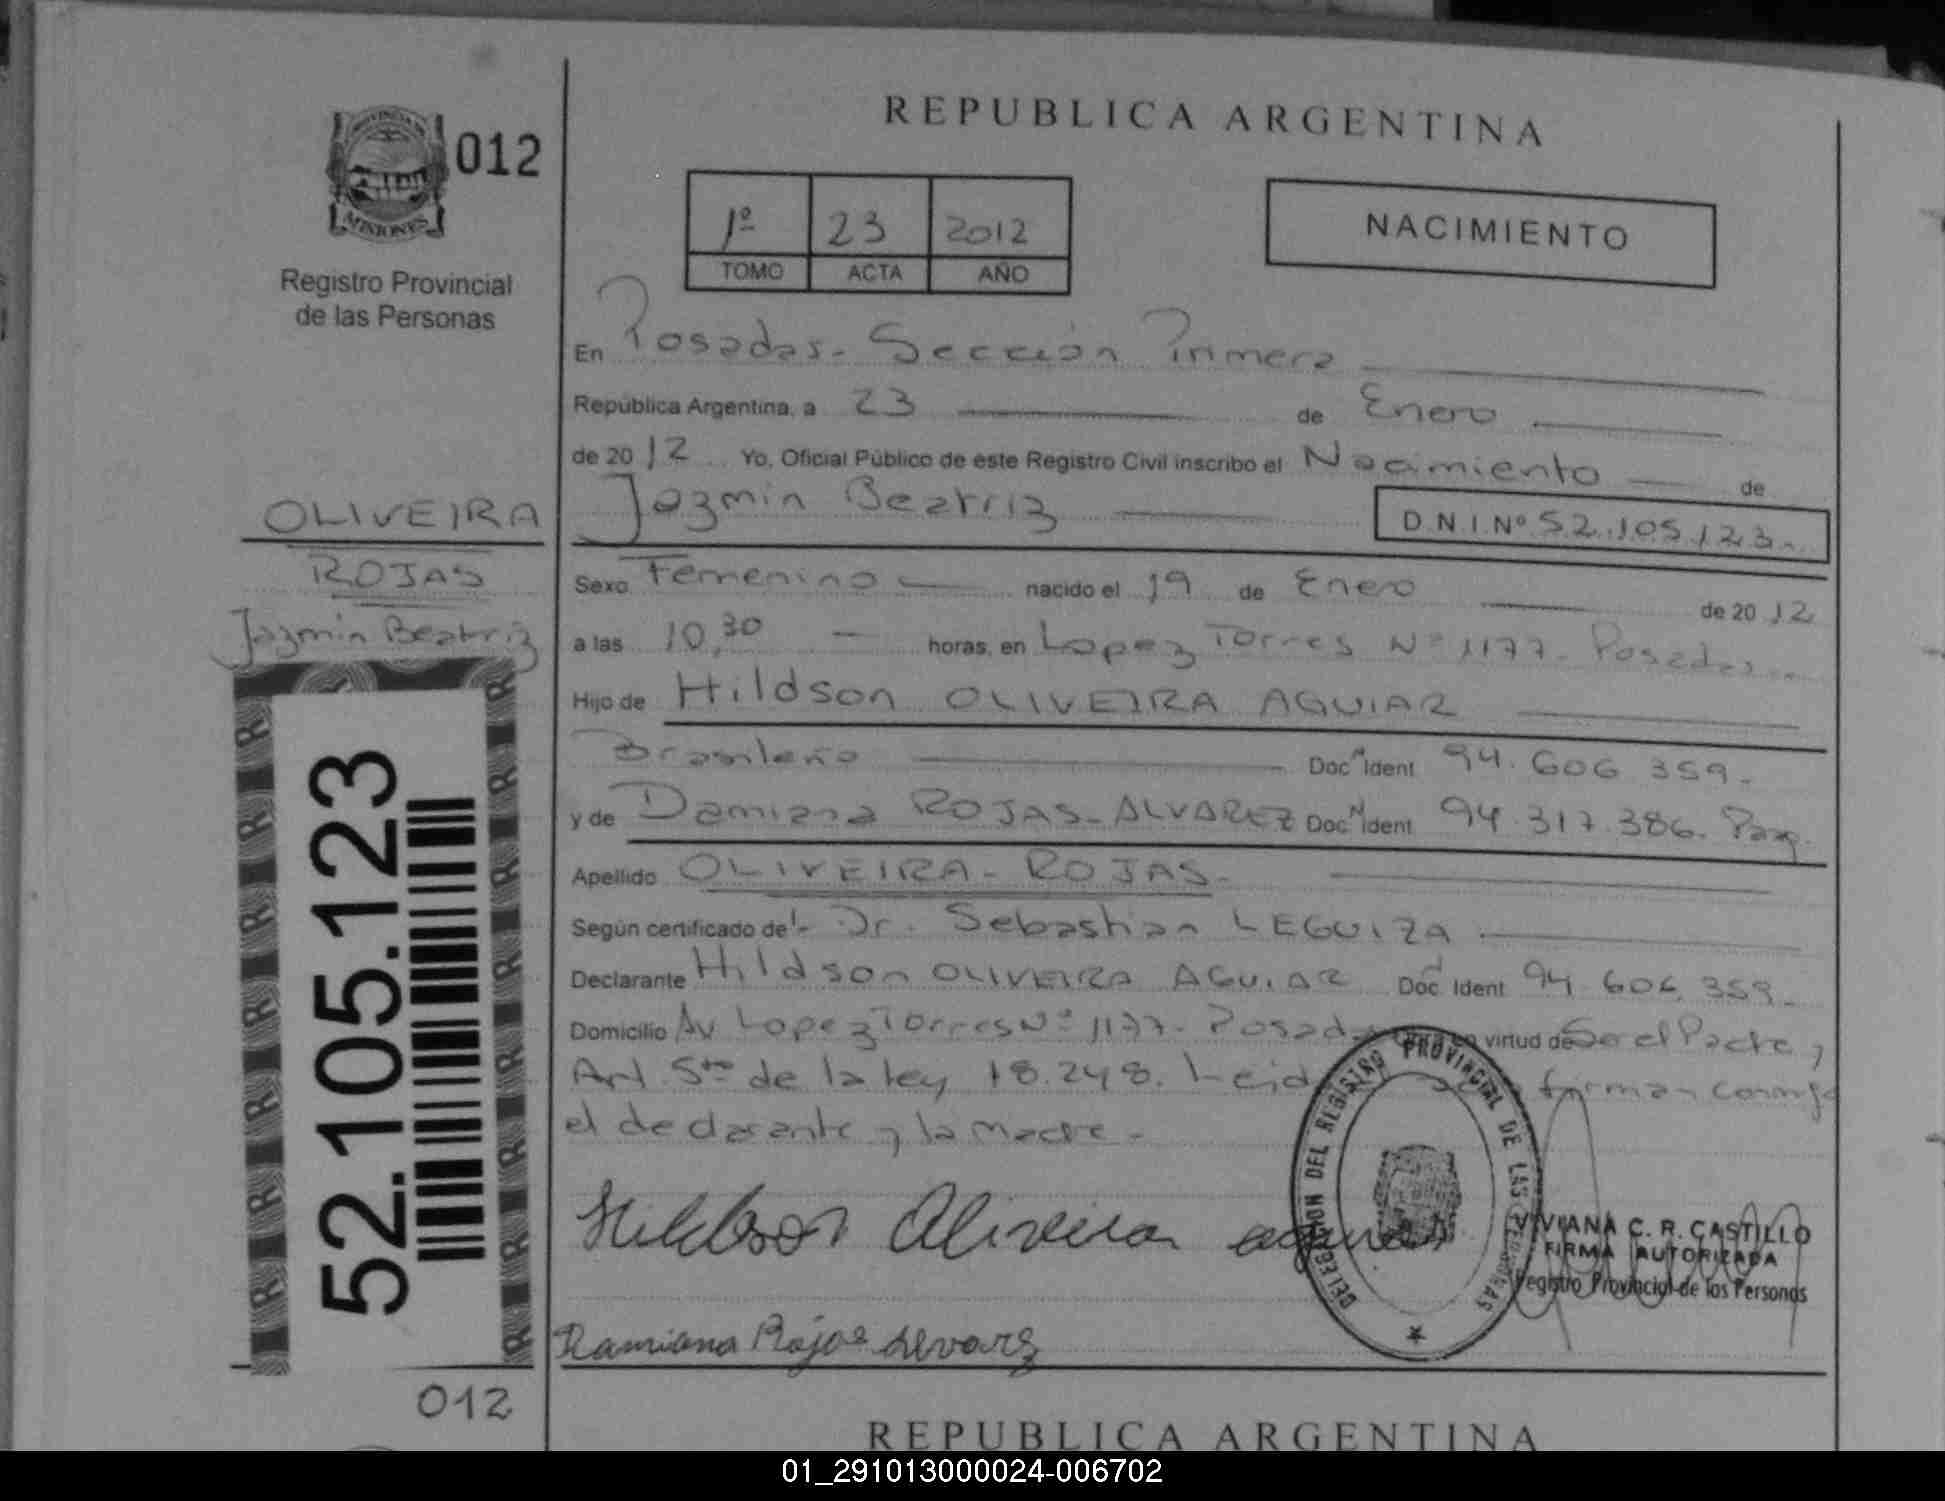 REPUBLICA ARGENTINA
PROVINCIA DE
MISIONES
012
Registro Provincial
de las Personas
1º 23 2012
TOMO ACTA AÑO
NACIMIENTO
En Posadas - Sección Primera
República Argentina, a 23 de Enero
de 2012 Yo, Oficial Público de este Registro Civil inscribo el Nacimiento de
Jazmin Beatriz
D.N.I.Nº 52.105.123.
OLIVEIRA
ROJAS
Jazmin Beatriz
52.105.123
012
Sexo Femenino nacido el 19 de Enero de 2012
a las 10,30 horas, en Lopez Torres Nº 1177 - Posadas
Hijo de Hildson OLIVEIRA AGUIAR
Brasileño Doc Ident 94.606.359.
y de Damiana ROJAS-ALVAREZ Doc Ident 94.317.386. Parag.
Apellido OLIVEIRA - ROJAS.
Según certificado de Dr. Sebastian LEGUIZA
Declarante Hildson OLIVEIRA AGUIAR Doc Ident 94.606.359.
Domicilio Av Lopez Torres Nº 1177 - Posadas virtud de Ser el Padre y
Art. 5to de la ley 18.248. Leida firman conmigo
el declarante y la madre -
Hildson Oliveira aguiar
DELEGACION DEL REGISTRO PROVINCIAL DE LAS PERSONAS
VIVIANA C. R. CASTILLO
FIRMA AUTORIZADA
Registro Provincial de las Personas
Damiana Rojas
REPUBLICA ARGENTINA
01_291013000024-006702